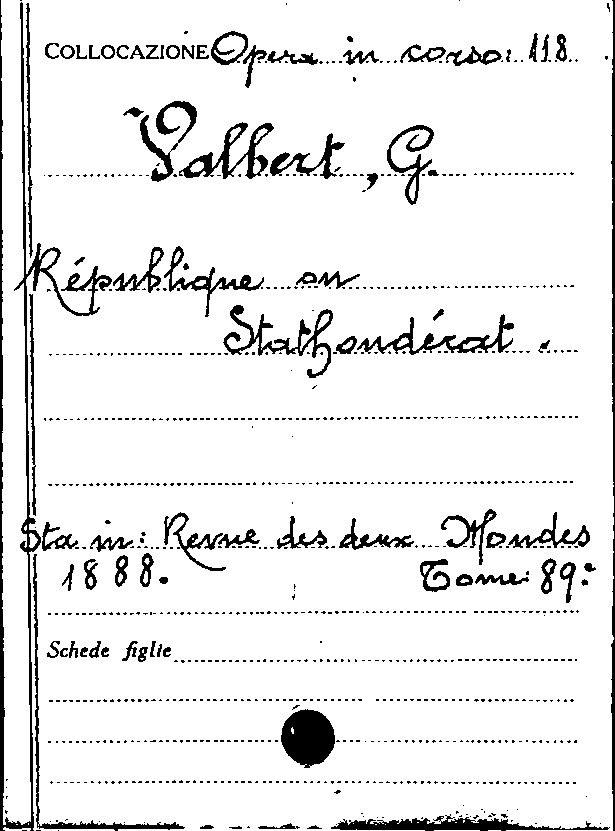 COLLOCAZIONE Opera in corso: 118
Valbert, G.
République ou
Stathoudérat.
Sta in: Revue des deux Mondes
1888. Tome: 89.º
Schede figlie